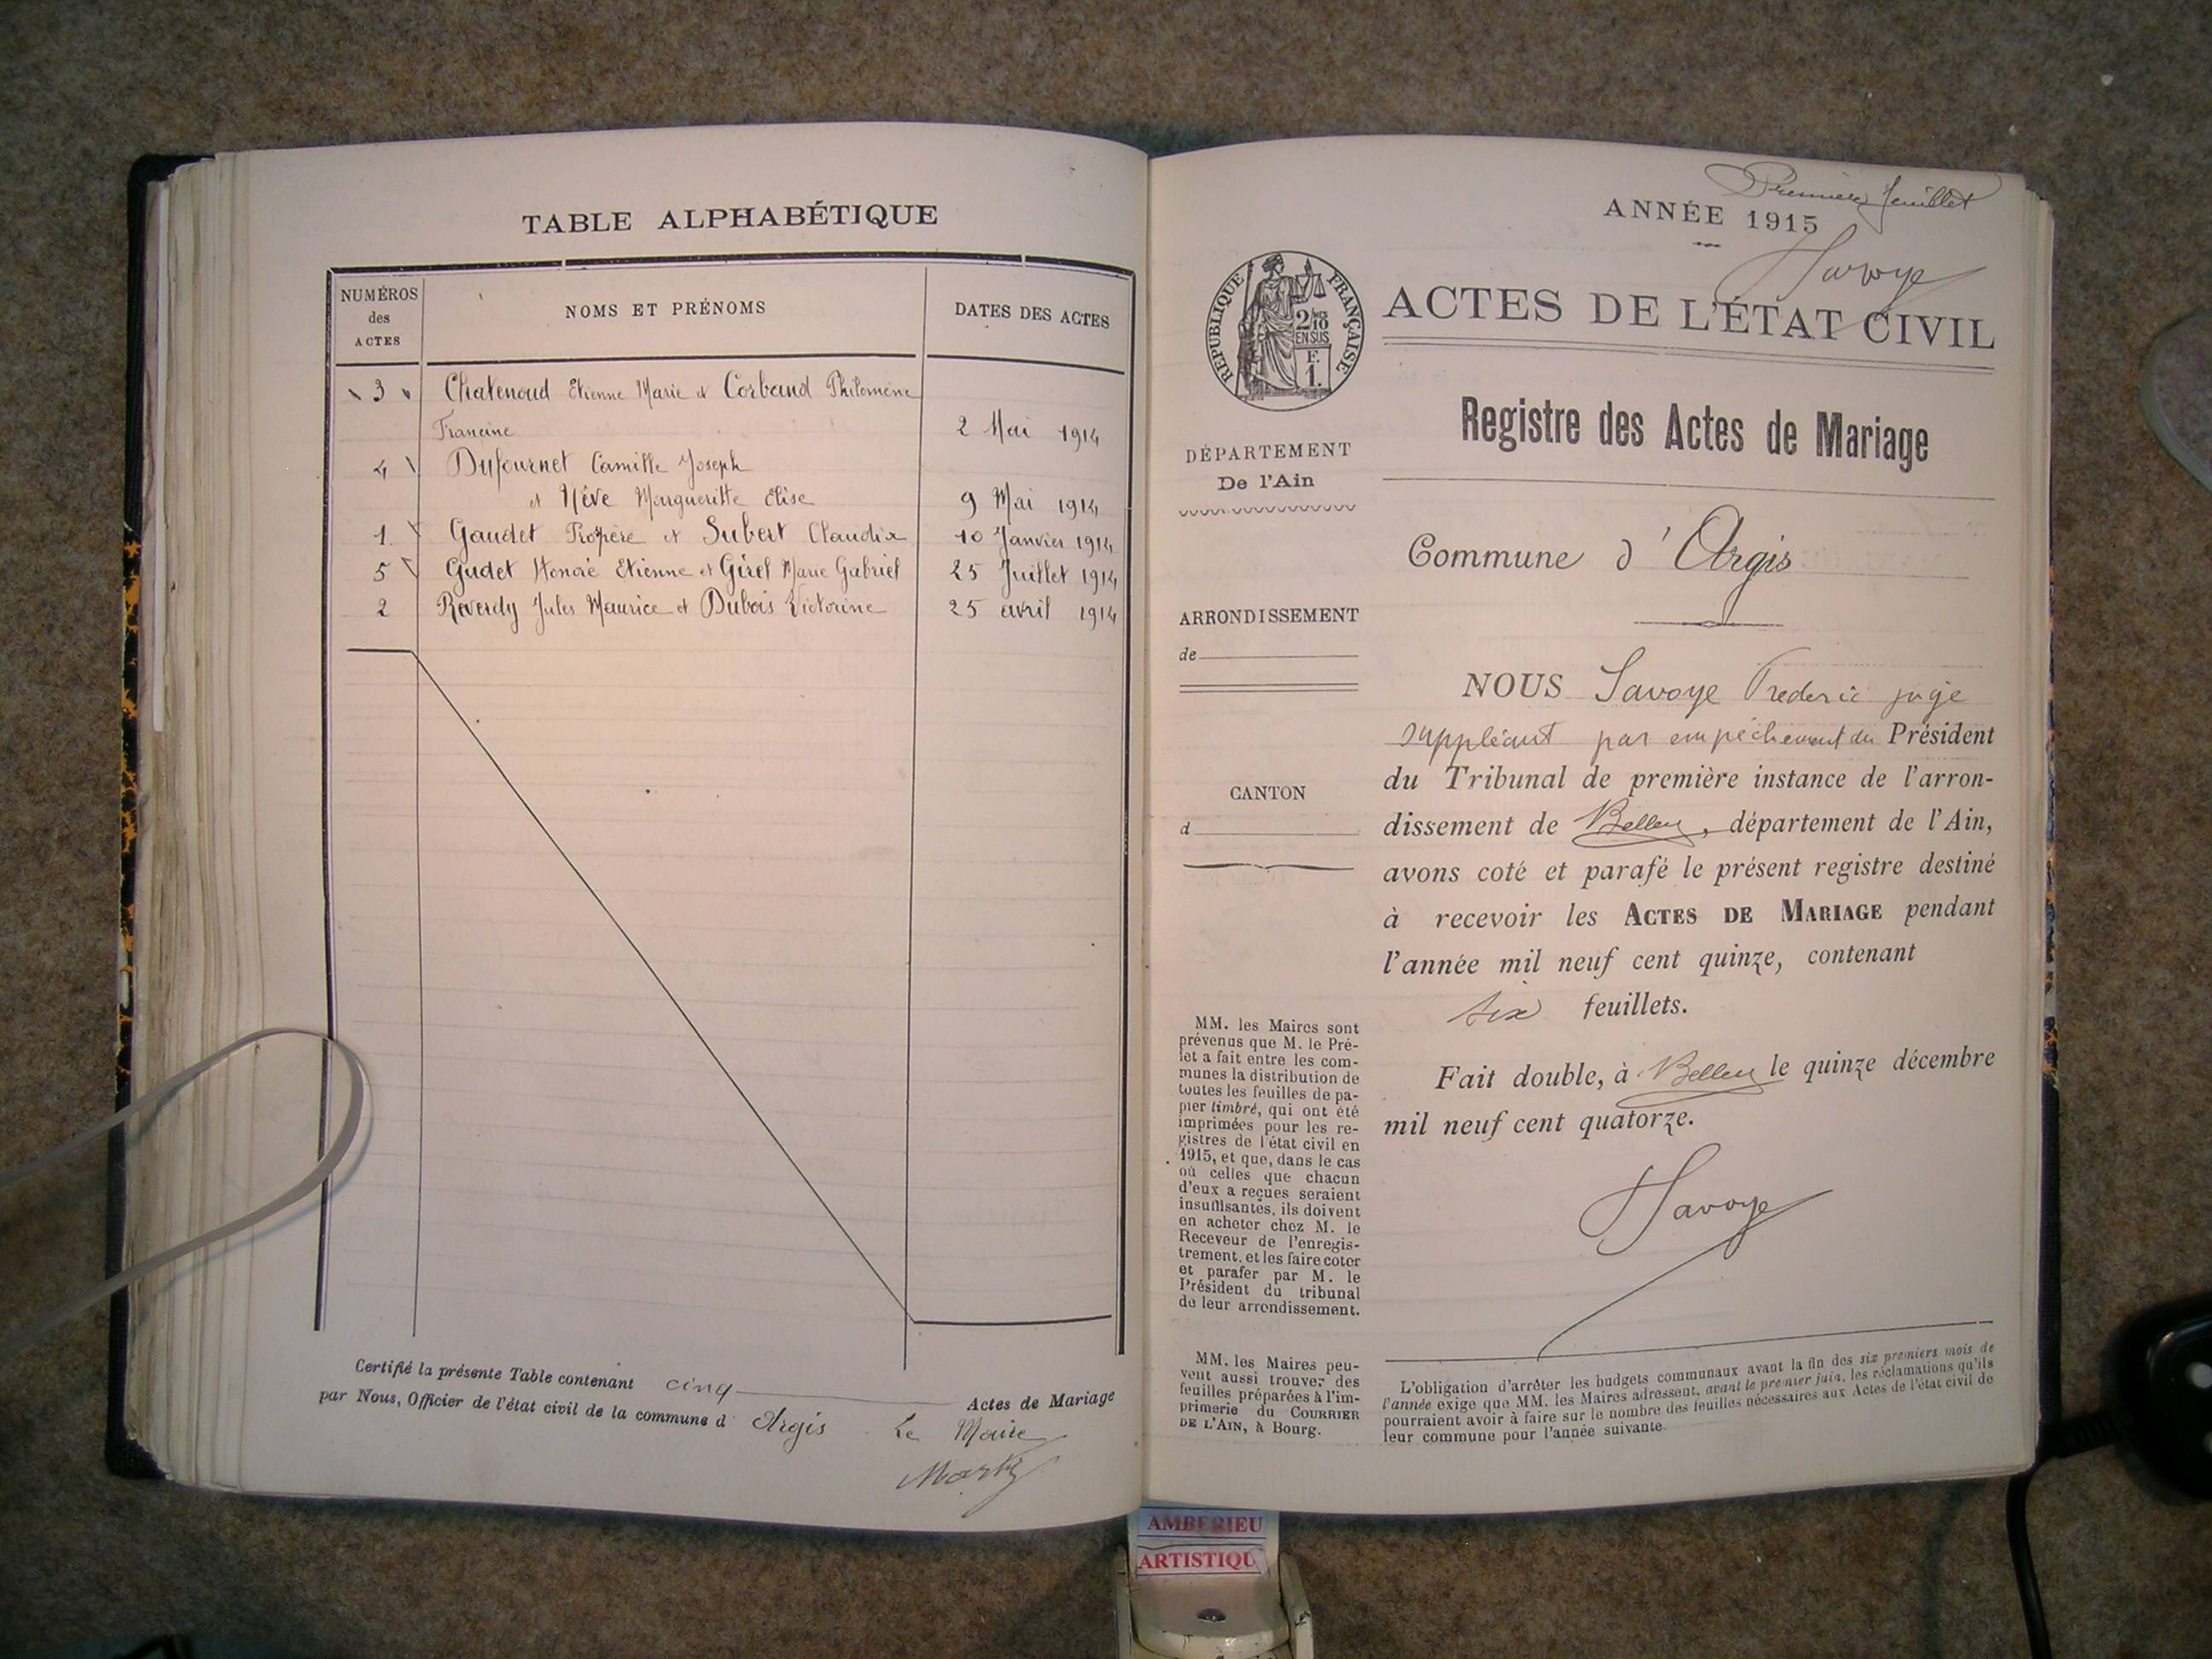 TABLE ALPHABÉTIQUE
NUMÉROS
des
ACTES
NOMS ET PRÉNOMS
DATES DES ACTES
3 Chatenoud Etienne Marie et Corbaud Philomène
Francine 2 Mai 1914
4 Dufournet Camille Joseph
et Nève Margueritte Elise 9 Mai 1914
1. Gaudet Propère et Subert Claudix 10 Janvier 1914
5 Gudet Honoré Etienne et Girel Marie Gabriel 25 Juillet 1914
2 Reverdy Jules Maurice et Dubois Victorine 25 avril 1914
Certifié la présente Table contenant cinq Actes de Mariage
par Nous, Officier de l'état civil de la commune d Argis Le Maire
Premier feuillet
ANNÉE 1915
Savoye
RÉPUBLIQUE FRANÇAISE
2/10
EN SUS
F.
1.
ACTES DE L'ÉTAT CIVIL
Registre des Actes de Mariage
DÉPARTEMENT
De l'Ain
Commune d'Argis
ARRONDISSEMENT
de
CANTON
d
NOUS Savoye Frederic juge
suppléant par empêchement du Président
du Tribunal de première instance de l'arron-
dissement de Belley, département de l'Ain,
avons coté et parafé le présent registre destiné
à recevoir les ACTES DE MARIAGE pendant
l'année mil neuf cent quinze, contenant
six feuillets.
Fait double, à Belley le quinze décembre
mil neuf cent quatorze.
Savoye
MM. les Maires sont
prévenus que M. le Pré-
fet a fait entre les com-
munes la distribution de
toutes les feuilles de pa-
pier timbré, qui ont été
imprimées pour les re-
gistres de l'état civil en
1915, et que, dans le cas
où celles que chacun
d'eux a reçues seraient
insuffisantes, ils doivent
en acheter chez M. le
Receveur de l'enregis-
trement, et les faire coter
et parafer par M. le
Président du tribunal
de leur arrondissement.
MM. les Maires peu-
vent aussi trouver des
feuilles préparées à l'im-
primerie du COURRIER
DE L'AIN, à Bourg.
L'obligation d'arrêter les budgets communaux avant la fin des six premiers mois de
l'année exige que MM. les Maires adressent, avant le premier juin, les réclamations qu'ils
pourraient avoir à faire sur le nombre des feuilles nécessaires aux Actes de l'état civil de
leur commune pour l'année suivante.
AMBERIEU
ARTISTIQU